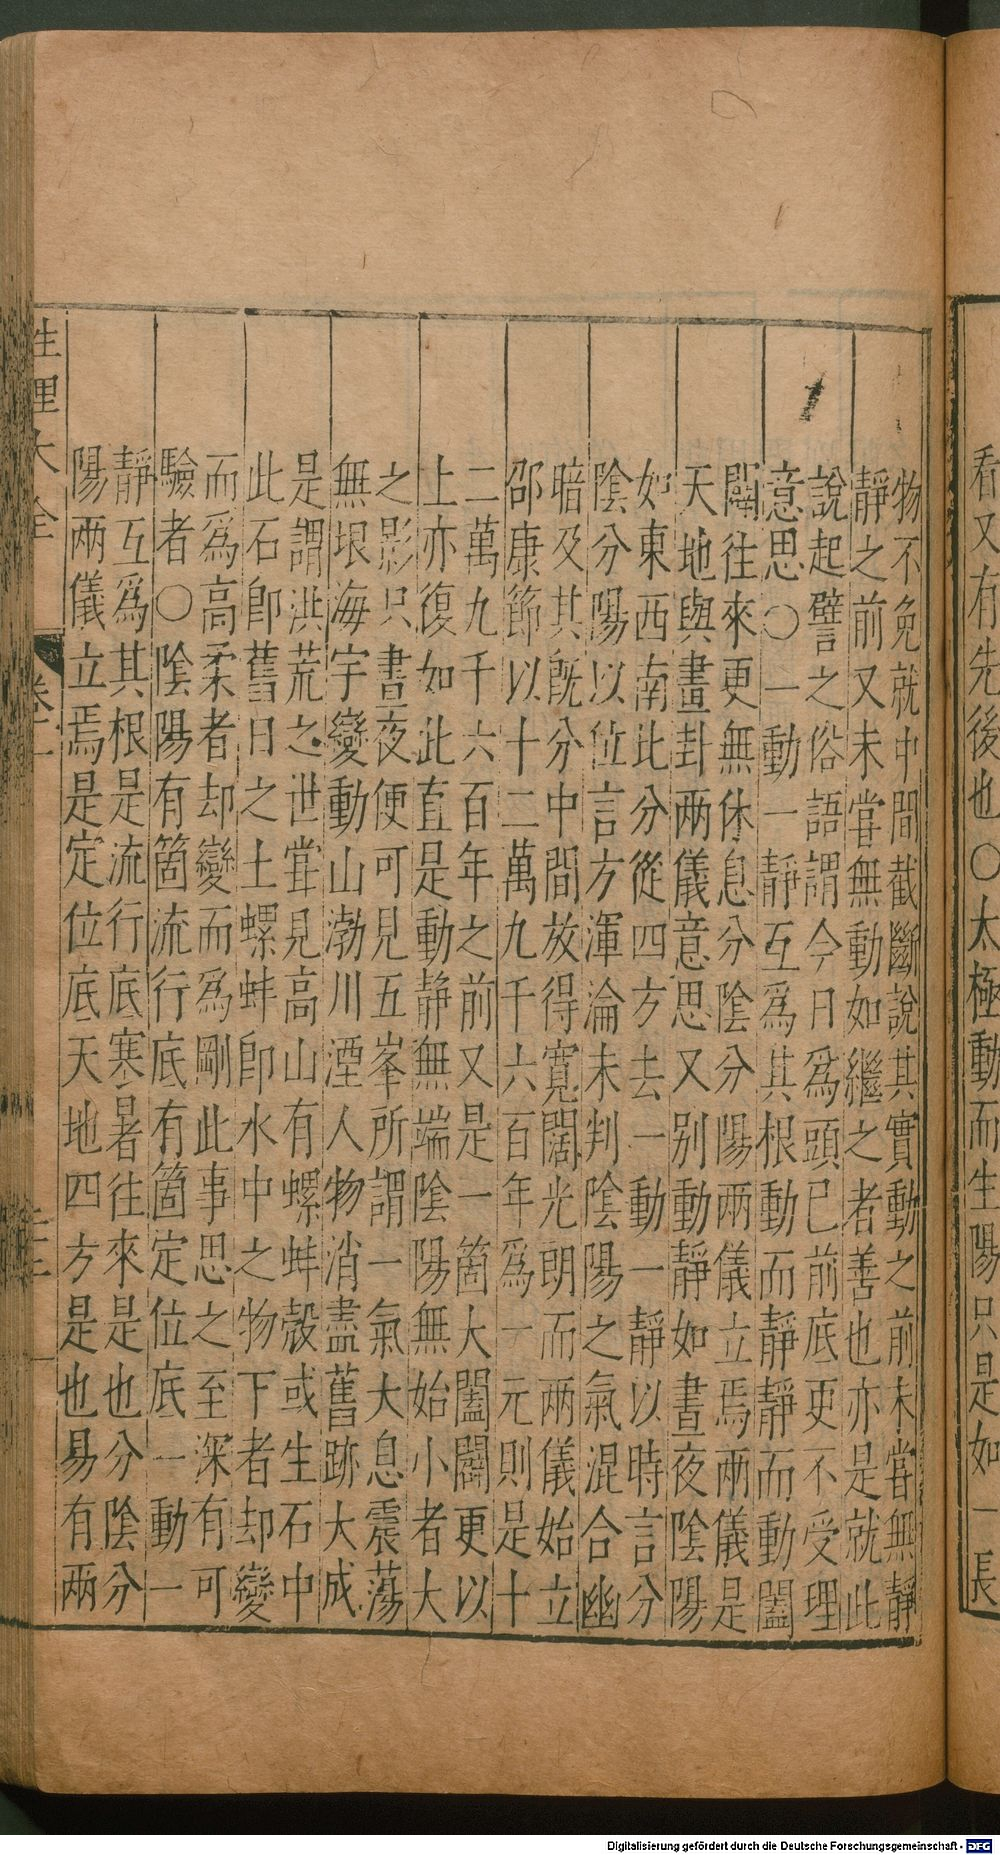 看又有先後也○太極動而生陽只是如一長
物不免就中間截斷說其實動之前未嘗無靜
靜之前又未嘗無動如繼之者善也亦是就此
說起譬之俗語謂今日為頭已前底更不受理
意思○一動一靜互為其根動而靜靜而動闔
闢往來更無休息分陰分陽兩儀立焉兩儀是
天地與畫卦兩儀意思又別動靜如晝夜陰陽
如東西南北分從四方去一動一靜以時言分
陰分陽以位言方渾淪未判陰陽之氣混合幽
暗及其旣分中間放得寬闊光朗而兩儀始立
邵康節以十二萬九千六百年為一元則是十
二萬九千六百年之前又是一箇大闔闢更以
上亦復如此直是動静無端陰陽無始小者大
之影只晝夜便可見五峯所謂一氣大息震蕩
無垠海宇變動山渤川湮人物消盡舊跡大成
是謂洪荒之世甞見高山有螺蚌殼或生石中
此石卽舊日之土螺蚌卽水中之物下者却變
而為高柔者却變而為剛此事思之至深有可
驗者○陰陽有箇流行底有箇定位底一動一
靜互為其根是流行底寒暑往來是也分陰分
陽兩儀立焉是定位底天地四方是也易有兩
性理大全 卷一
Digitalisierung gefördert durch die Deutsche Forschungsgemeinschaft - DFG